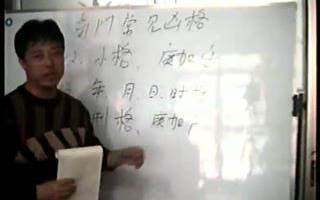 奇门常见凶格
小格、庚加
年月日时
刑格、庚加